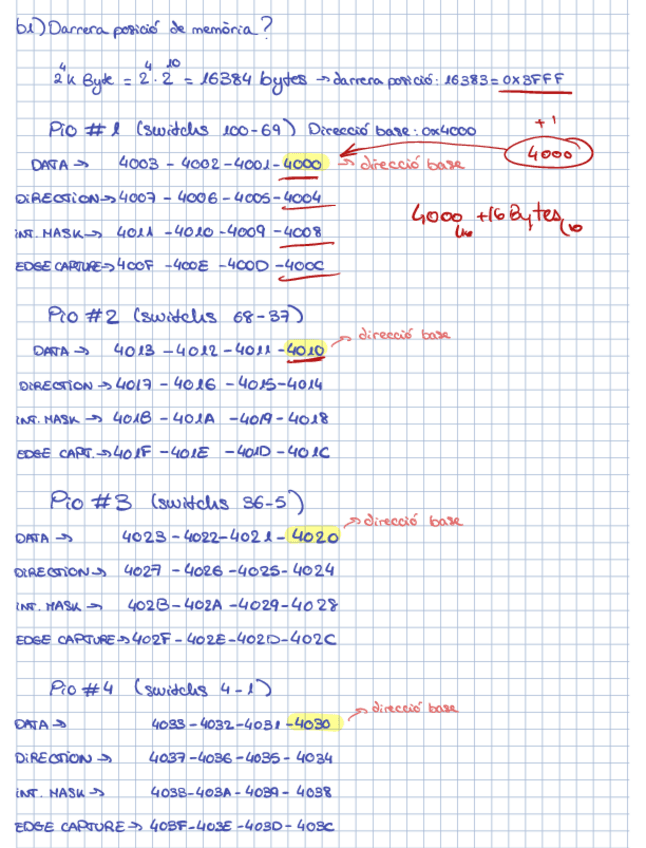 b1) Darrera posició de memòria?
2⁴ K Byte = 2⁴ · 2¹⁰ = 16384 bytes → darrera posició: 16383 = 0x3FFF
Pio #1 (switchs 100-69) Direcció base: 0x4000
+1
4000
DATA → 4003 - 4002 - 4001 - 4000 → direcció base
DIRECTION → 4007 - 4006 - 4005 - 4004
4000 + 16 Bytes
INT. MASK → 4011 - 4010 - 4009 - 4008
EDGE CAPTURE → 400F - 400E - 400D - 400C
Pio #2 (switchs 68-37)
direcció base
DATA → 4013 - 4012 - 4011 - 4010
DIRECTION → 4017 - 4016 - 4015 - 4014
INT. MASK → 401B - 401A - 4019 - 4018
EDGE CAPT. → 401F - 401E - 401D - 401C
Pio #3 (switchs 36-5)
direcció base
DATA → 4023 - 4022 - 4021 - 4020
DIRECTION → 4027 - 4026 - 4025 - 4024
INT. MASK → 402B - 402A - 4029 - 4028
EDGE CAPTURE → 402F - 402E - 402D - 402C
Pio #4 (switchs 4-1)
direcció base
DATA → 4033 - 4032 - 4031 - 4030
DIRECTION → 4037 - 4036 - 4035 - 4034
INT. MASK → 403B - 403A - 4039 - 4038
EDGE CAPTURE → 403F - 403E - 403D - 403C